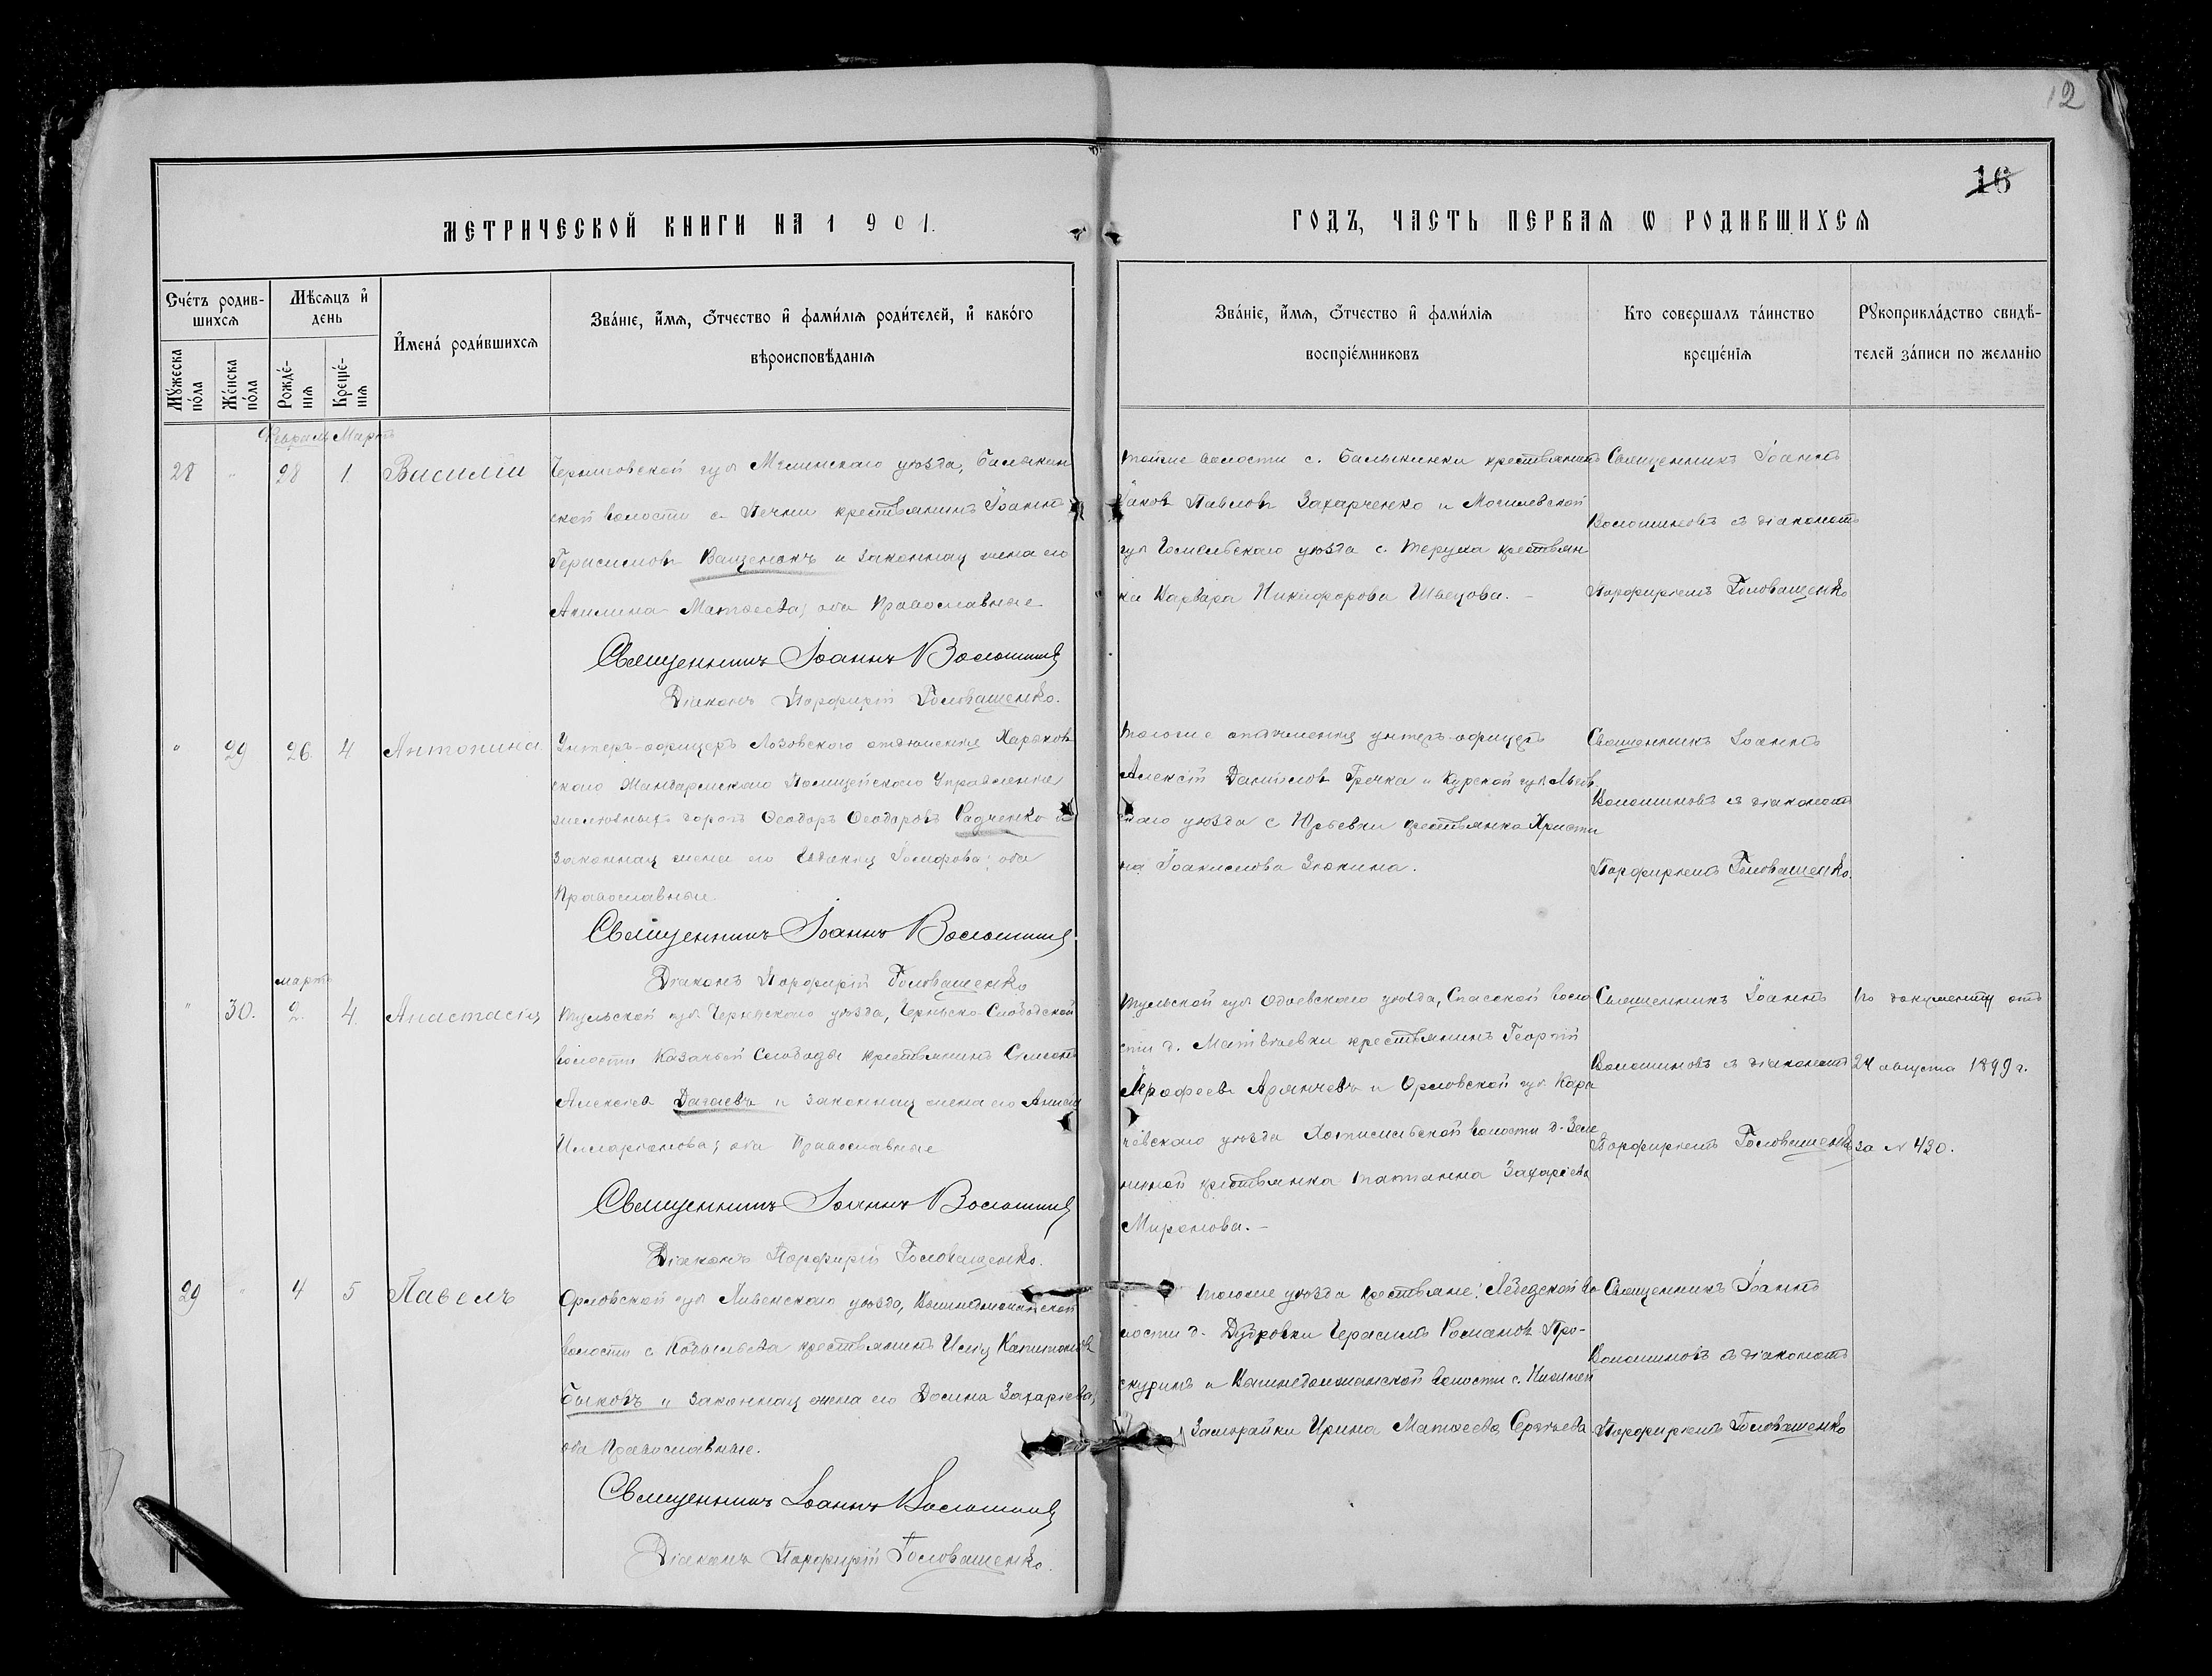 12
16
МЕТРИЧЕСКОЙ КНИГИ НА 1901.
ГОДЪ, ЧАСТЬ ПЕРВАЯ Ѡ РОДИВШИХСЯ
Счéтъ родив-
шихсѧ
Мꙋ́жеска
пóла
Жéнска
пóла
Мѣсѧцъ и҆
день
Рождé-
нїѧ
Крещé-
нїѧ
И҆менá роди́вшихсѧ
Звáнїе, и҆́мѧ, ѻ҆́тчество и҆ фами́лїѧ роди́телей, и҆ какóго
вѣроисповѣ́данїѧ
Звáнїе, и҆́мѧ, ѻ҆́тчество и҆ фами́лїѧ
воспрїéмниковъ
Кто совершалъ тáинство
крещéнїѧ
Рꙋкоприклáдство свидѣ́-
телей зáписи по желáнїю
Февраль Мартъ
28 " 28 1 Василій
Черниговской губ Мглинскаго уѣзда, Балыкин
ской волости с. Печни крестьянинъ Іоаннъ
Герасимовъ Ващенокъ и законная жена его
Акилина Матѳеева; оба Православные
Священникъ Іоаннъ Волошиновъ
Діаконъ Порфирій Головашенко.
тойже волости с. Балыкинки крестьянинъ
Іаковъ Павловъ Захарченко и Могилевской
губ Гомельскаго уѣзда с. Теруха крестьян
ка Варвара Никифорова Швецова. –
Священникъ Іоаннъ
Волошиновъ съ діакономъ
Порфиріемъ Головашенко
" 29 26. 4 Антонина
Унтеръ-офицеръ Лозовского отдѣленія Харьков
ского Жандармскаго Полицейского Управленія
желѣзныхъ дорогъ Ѳеодоръ Ѳеодоровъ Радченко и
законная жена его Іосифова; оба
Православные.
Священникъ Іоаннъ Волошиновъ
Діаконъ Порфирій Головашенко
тогоже отдѣленія унтеръ-офицеръ
Алексѣй Даниловъ Гречка и Курской губ Льгов
скаго уѣзда с Юрьевки крестьянка Христи
на Іоакимова Зюкина.
Священникъ Іоаннъ
Волошиновъ съ діакономъ
Порфиріемъ Головашенко.
мартъ
" 30. 2. 4. Анастасія
Тульской губ. Чернскаго уѣзда, Чернско-Слободской
волости Казачьей Слободы крестьянинъ Симеонъ
Алексѣевъ Дагаевъ и законная жена его
оба Православные
Священникъ Іоаннъ Волошиновъ
Діаконъ Порфирій Головащенко.
Тульской губ Одоевскаго уѣзда, Спасской воло
сти д. Матвѣевки крестьянинъ Георгій
и Орловской губ. Кара
чевскаго уѣзда Хотимльской волости д.
крестьянка Татіанна Захаріева
Миронова. –
Священникъ Іоаннъ
Волошиновъ съ діакономъ
Порфиріемъ Головашенко
По документу отъ
24 августа 1899 г.
за № 430.
29 " 4 5 Павелъ
Орловской губ Ливенскаго уѣзда,
волости с крестьянинъ Илія Капитоновъ
Быковъ и законная жена его Домна Захаріева,
оба Православные.
Священникъ Іоаннъ Волошиновъ
Діаконъ Порфирій Головашенко.
тогоже уѣзда крестьяне: во
лости д. Дубровки Герасимъ Романовъ Про-
скуринъ и волости с.
Замарайки Ирина Матѳеева Сергѣева
Священникъ Іоаннъ
Волошиновъ съ діакономъ
Порфиріемъ Головашенко